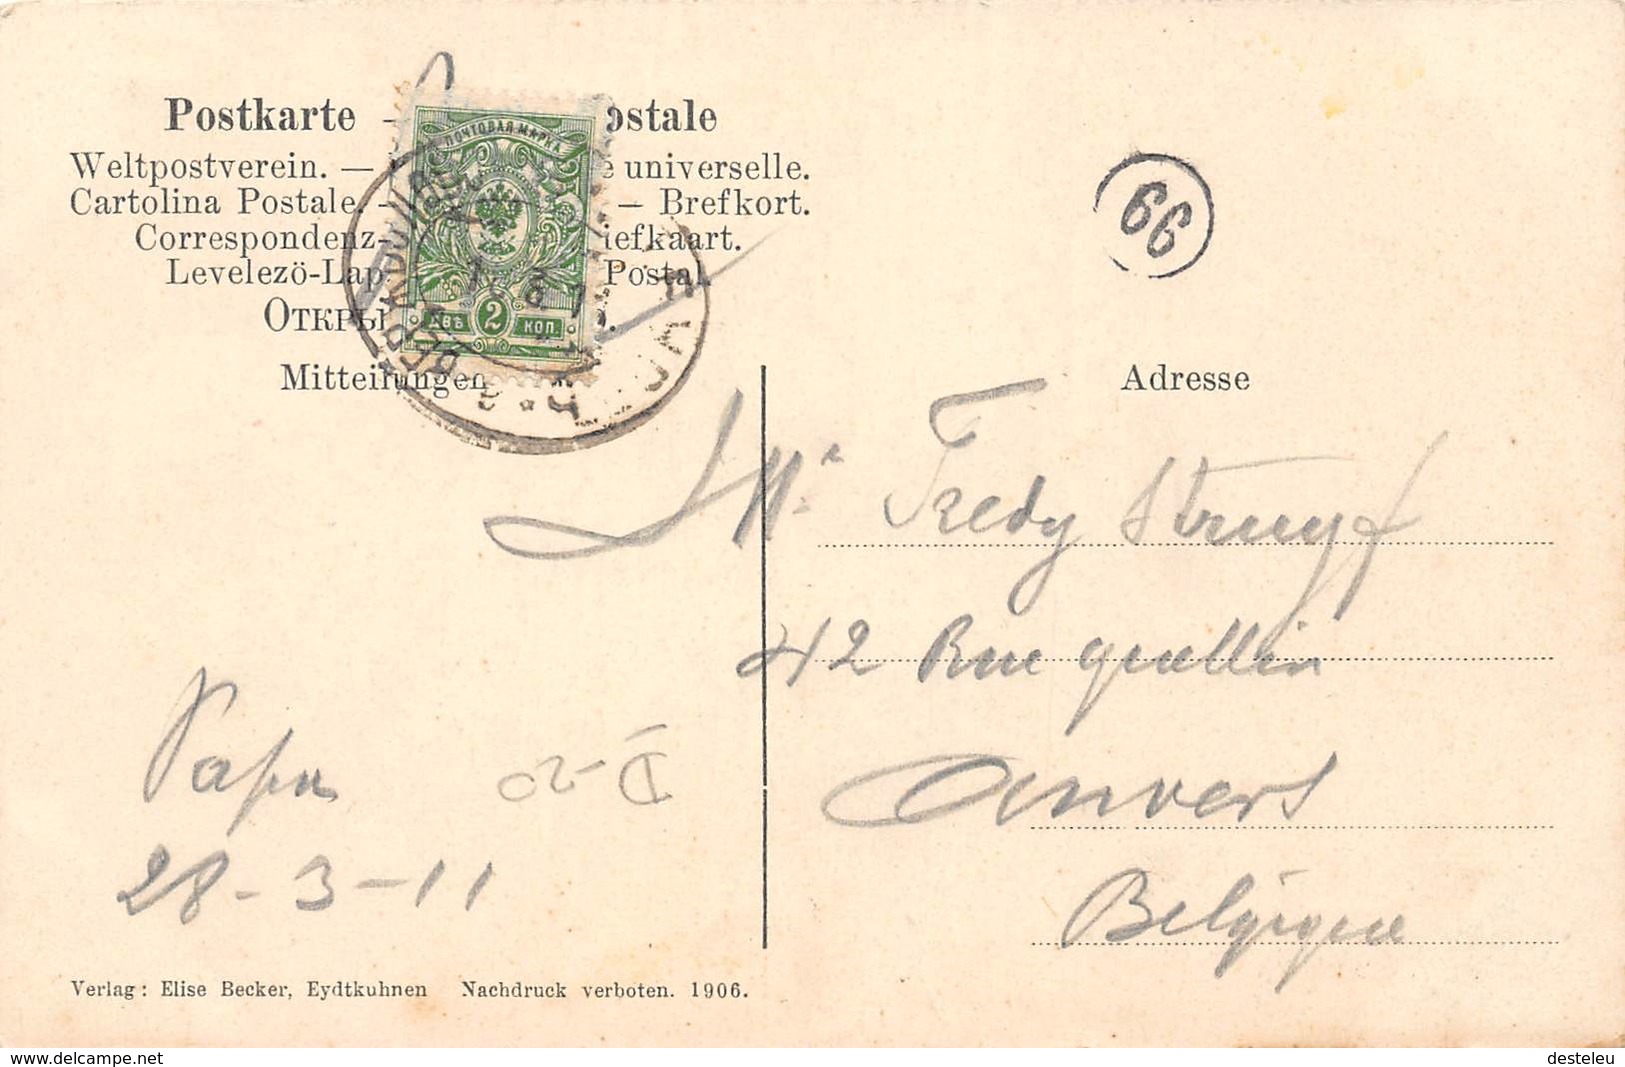 Postkarte - ostale
Weltpostverein. — e universelle.
Cartolina Postale. - — Brefkort.
Correspondenz- iefkaart.
Levelezö-Lap Postal.
ОТКРЫ
ПОЧТОВАЯ МАРКА
ДВѢ 2 КОП.
66
Mitteilungen
Adresse
Mr Fredy Struyf
42 Rue Quellin
Anvers
Belgique
Papa
28-3-11
D-20
Verlag: Elise Becker, Eydtkuhnen Nachdruck verboten. 1906.
www.delcampe.net
desteleu